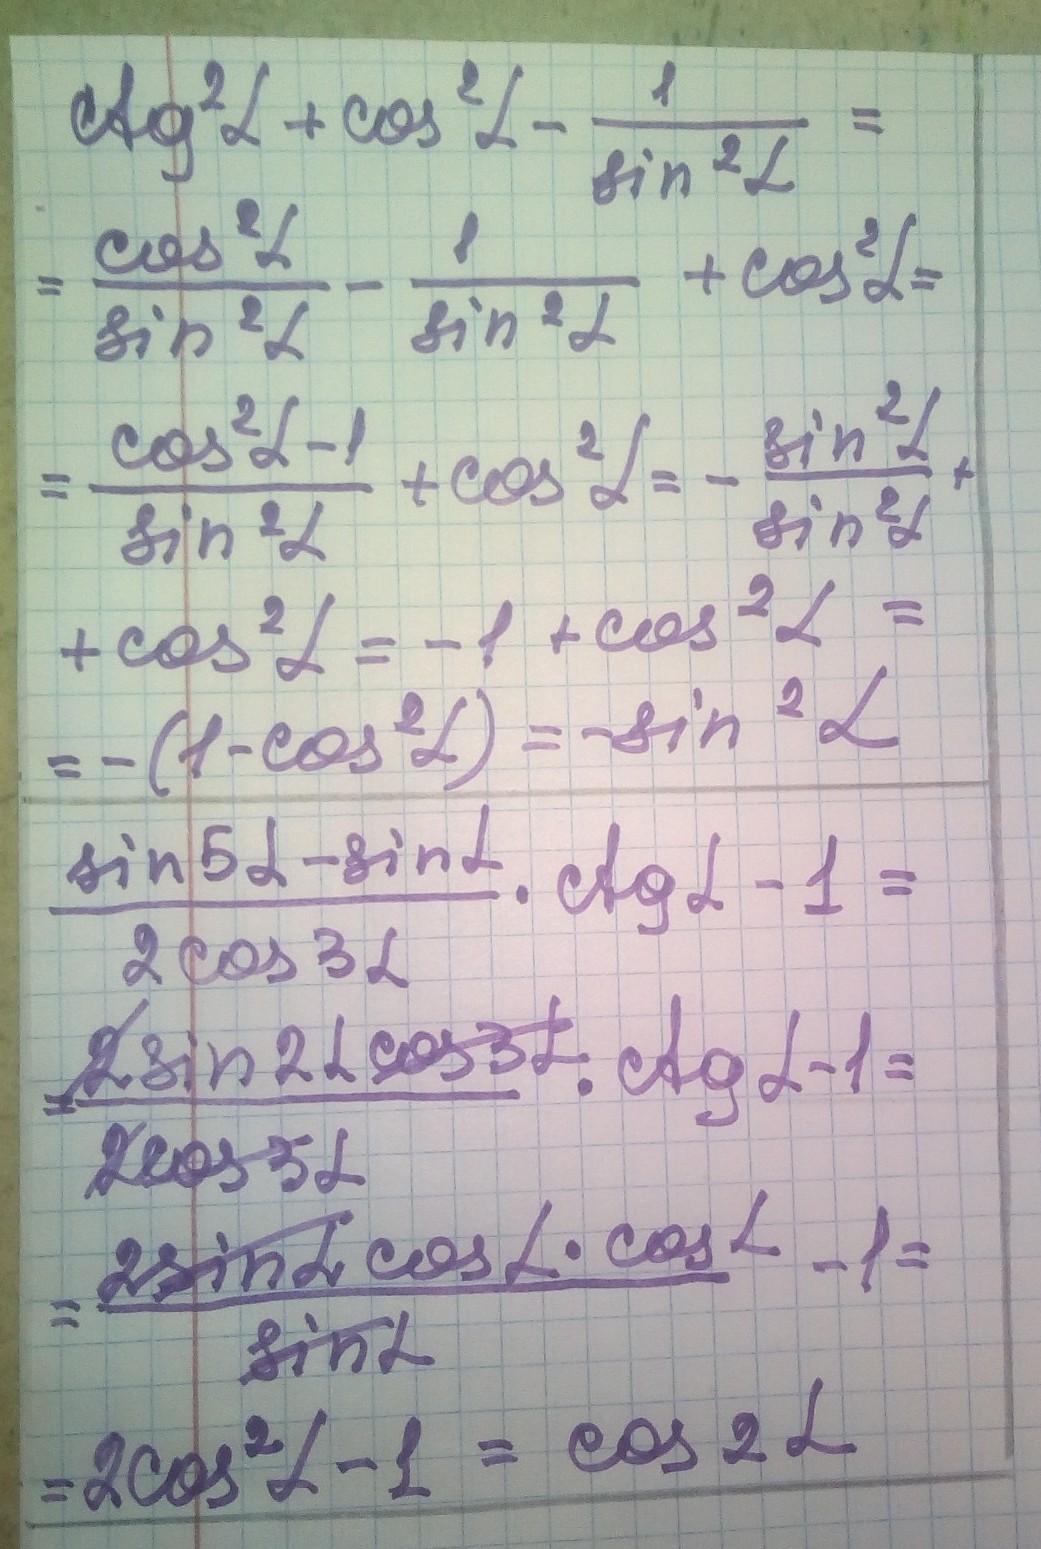 ctg²α + cos²α − 1/sin²α =
= cos²α/sin²α − 1/sin²α + cos²α =
= (cos²α − 1)/sin²α + cos²α = − sin²α/sin²α +
+ cos²α = −1 + cos²α =
= −(1 − cos²α) = −sin²α
(sin5α − sinα)/(2cos3α) · ctgα − 1 =
= (2sin2αcos3α)/(2cos3α) · ctgα − 1 =
= (2sinαcosα · cosα)/sinα − 1 =
= 2cos²α − 1 = cos2α